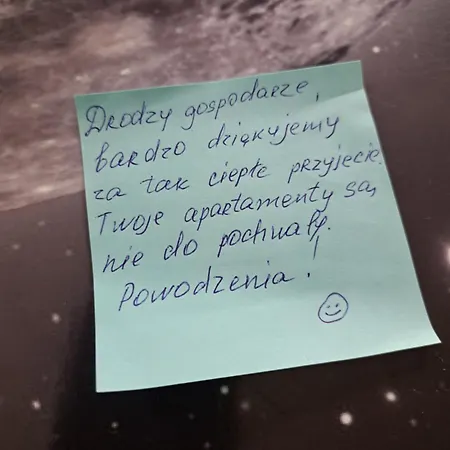 Drodzy gospodarze,
bardzo dziękujemy
za tak ciepłe przyjęcie.
Twoje apartamenty są,
nie do pochwały.
Powodzenia!